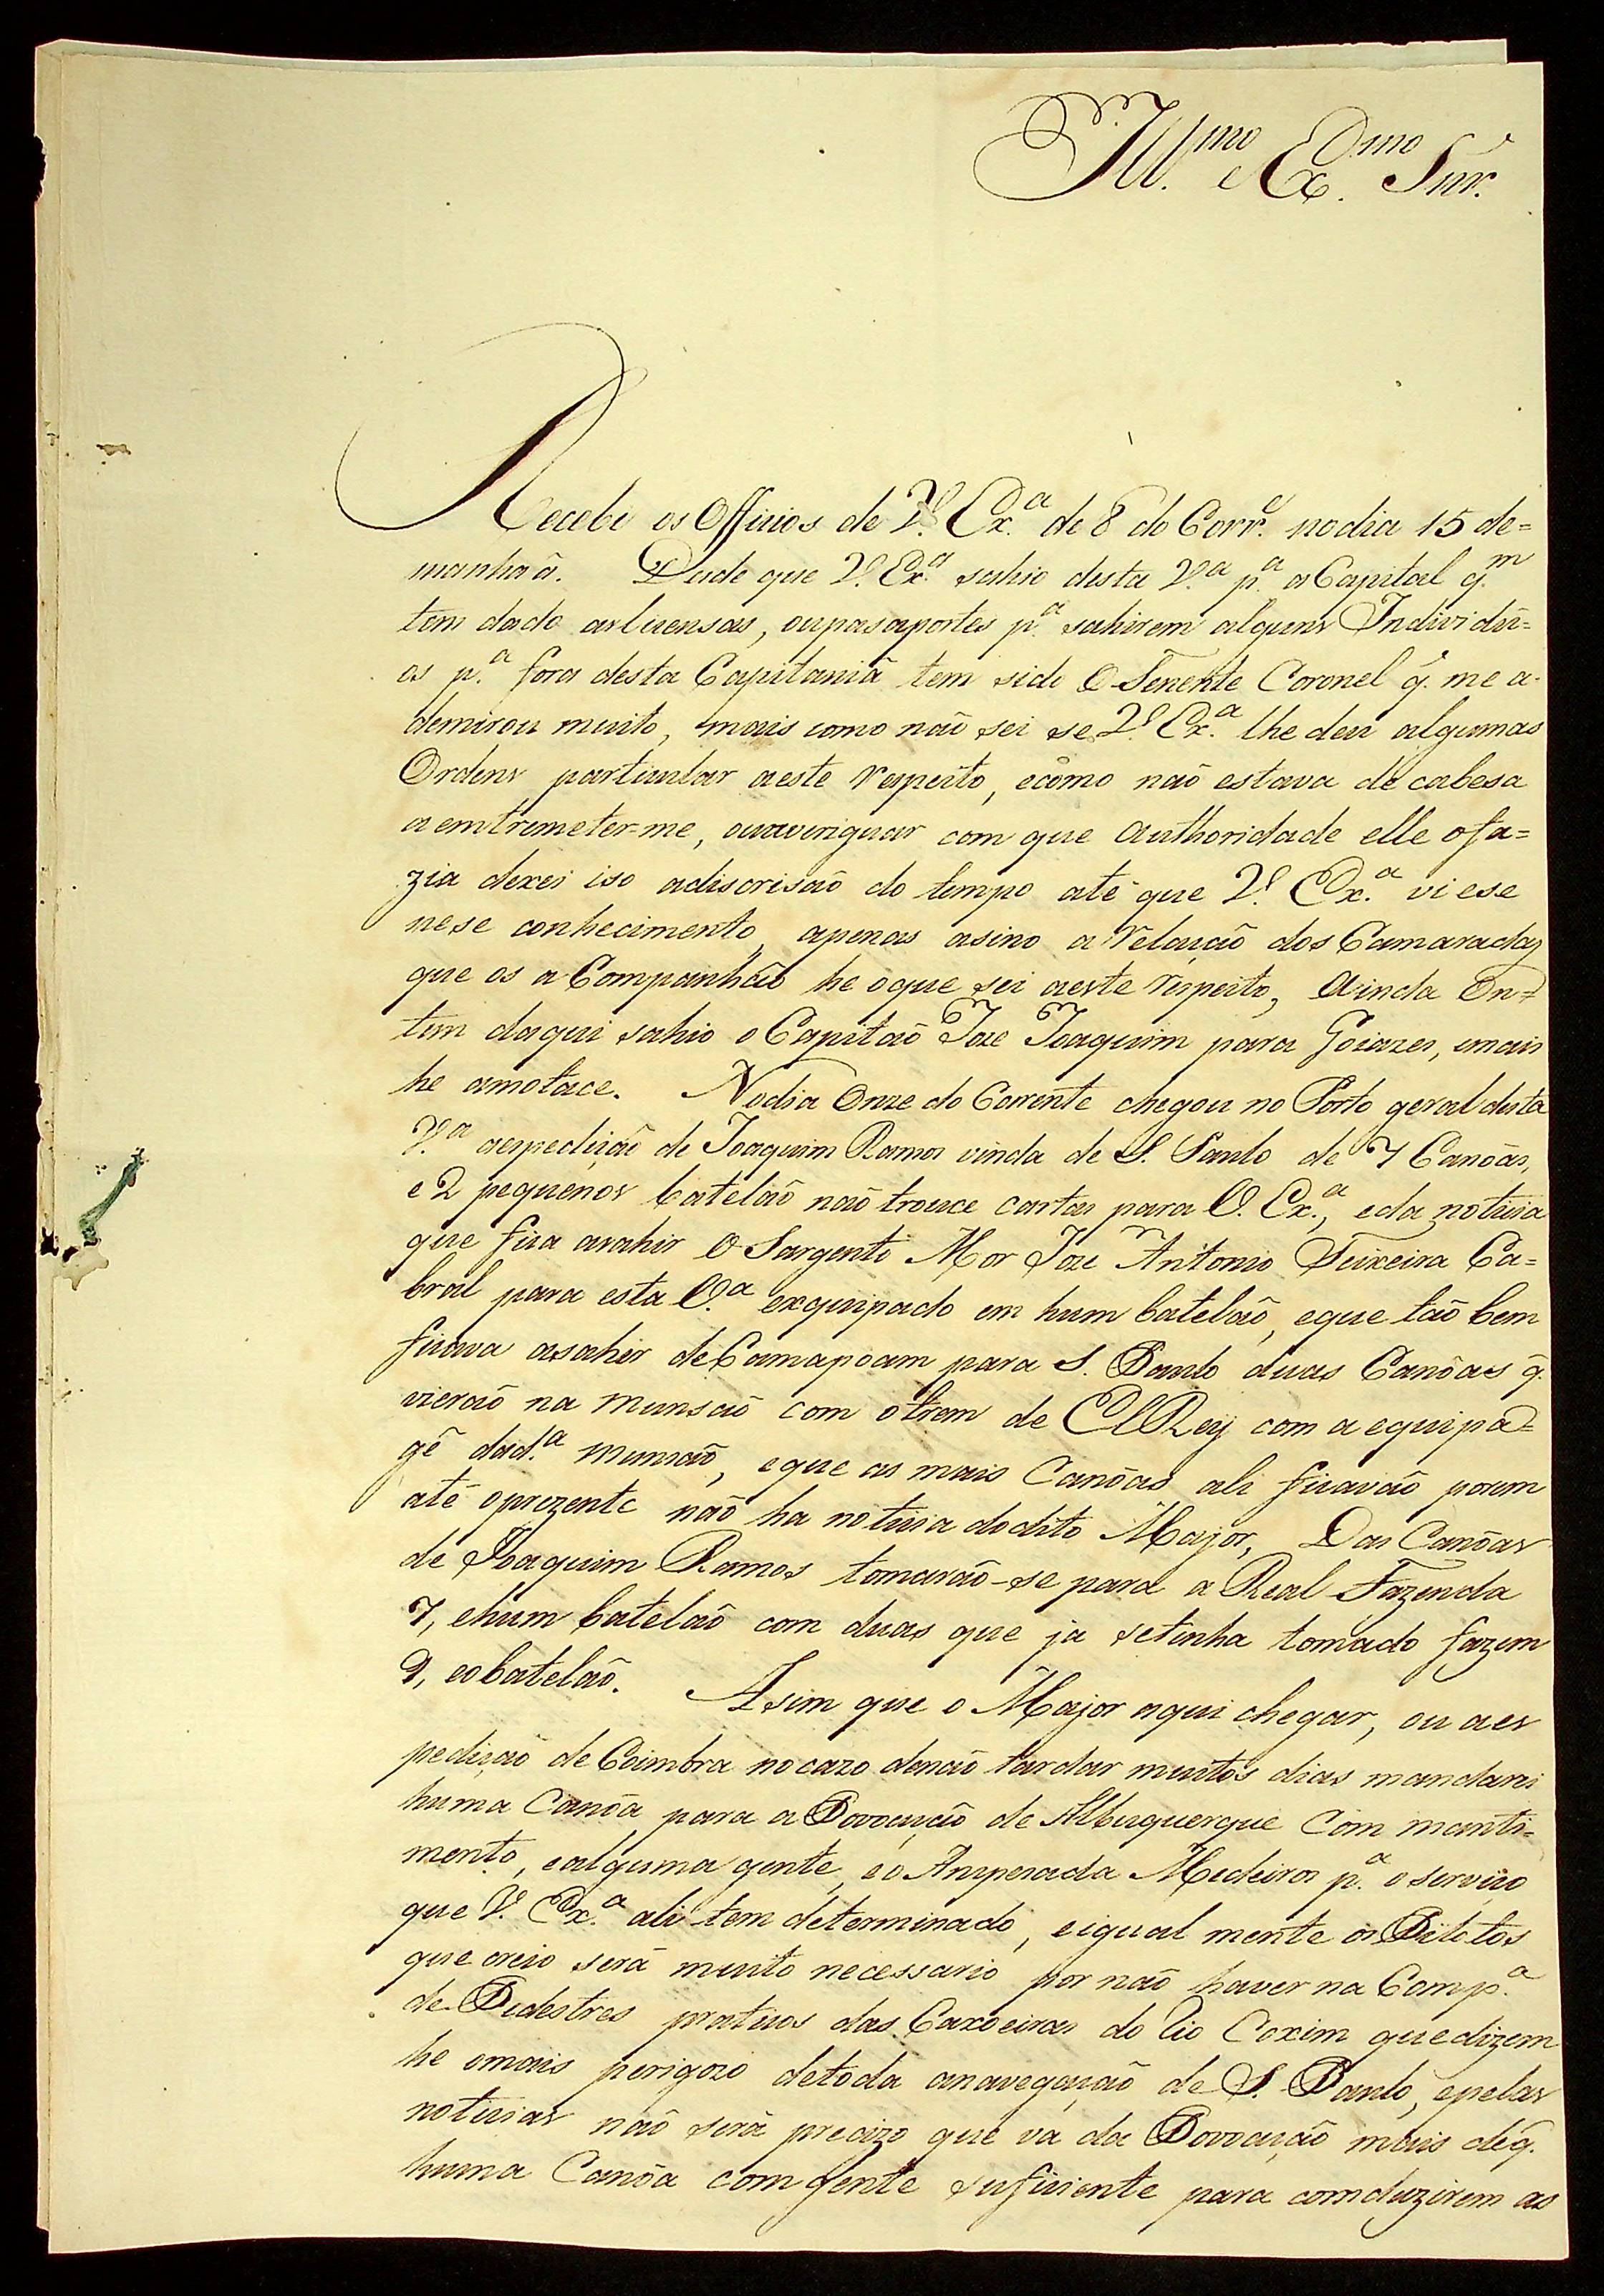 Ill.mo e Ex.mo Snr.
Recebi os Officios de V. Ex.a de 8 do Corr.e no dia 15 de=
manhaã. Desde que V. Ex.a sahio desta V.a p.a a Capital q.m
tem dado as licensas, ou pasaportes p.a sahirem alguns Individu=
os p.a fora desta Capitaniâ tem sido O Tenente Coronel q. me a-
demirou muito, mais como naõ sei se V. Ex.a lhe deu algumas
Ordens particular a este respeito, e cómo naõ estava de cabesa
a emtremeter=me, ou averiguar com que Authoridade elle o fa=
zia dexei iso a discrisaõ do tempo até que V. Ex.a viese
nese conhecimento, apenas asino a relaçaõ dos Camaradas
que os a Companhaõ he o que sei a este respeito, Ainda On=
tem daqui sahio o Capitaõ Joze Joaquim para Goiazes, e mais
he amotace. No dia Onze do Corrente chegou no Porto geral desta
V.a a espediçaõ de Joaquim Ramos vinda de S. Paulo de 7 Canôas,
e 2 pequenos batelaõ naõ trouce cartas para V. Ex.a, e da noticia
que fica a sahir O Sargento Mor Joze Antonio Teixeira Ca=
bral para esta V.a exquipado em hum batelaõ, e que taõ bem
ficava a sahir de Camapoam para S. Paulo duas Canôas q.
vieraõ na Munsaõ com o trem de El Rey com a equipa=
gê da d.a munsaõ, e que as mais Canôas ali ficavaõ porem
até o prezente naõ ha noticia do dito Major, Das Canôas
de Joaquim Ramos tomaraõ-se para a Real Fazenda
7, e hum batelaõ com duas que ja se tinha tomado fazem
9, e o batelaõ. Asim que o Major aqui chegar, ou a es
pediçaõ de Coimbra no cazo de naõ tardar muitos dias mandarei
huma Canôa para a Povoaçaõ de Albuquerque Com manti=
mento, e alguma gente, e o Anspesada Medeiros p.a o serviço
que V. Ex.a ali tem determinado, e igual mente os Pilotos
que creio será muito necessario por naõ haver na Comp.a
de Pedestres praticos das Caxoeiras do Rio Coxim que dizem
he o mais perigozo de toda a navegaçaõ de S. Paulo, e pelas
noticias naõ será precizo que va da Povoaçaõ mais de q.
huma Canôa com gente suficiente para comduzirem as